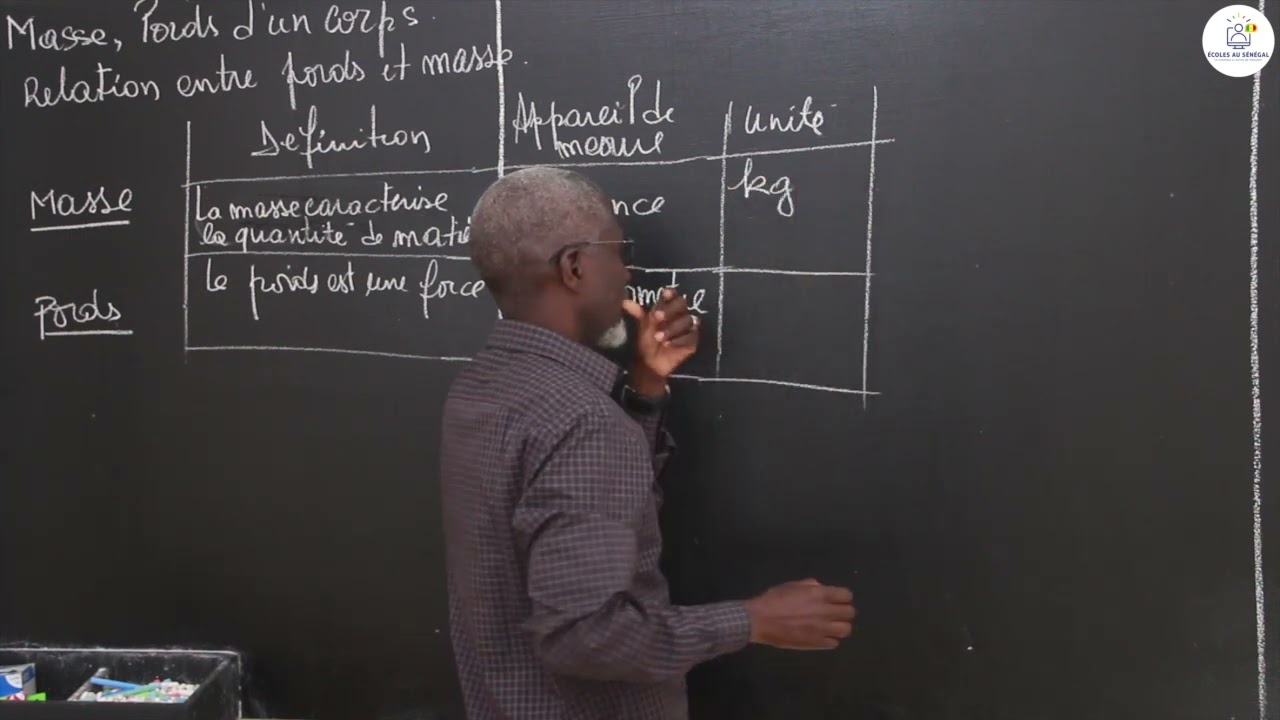 Masse, Poids d'un corps.
Relation entre poids et masse.
Définition
Appareil de
mesure
unité
Masse
La masse caractérise
la quantité de
kg
Poids
le poids est une force
ÉCOLES AU SÉNÉGAL